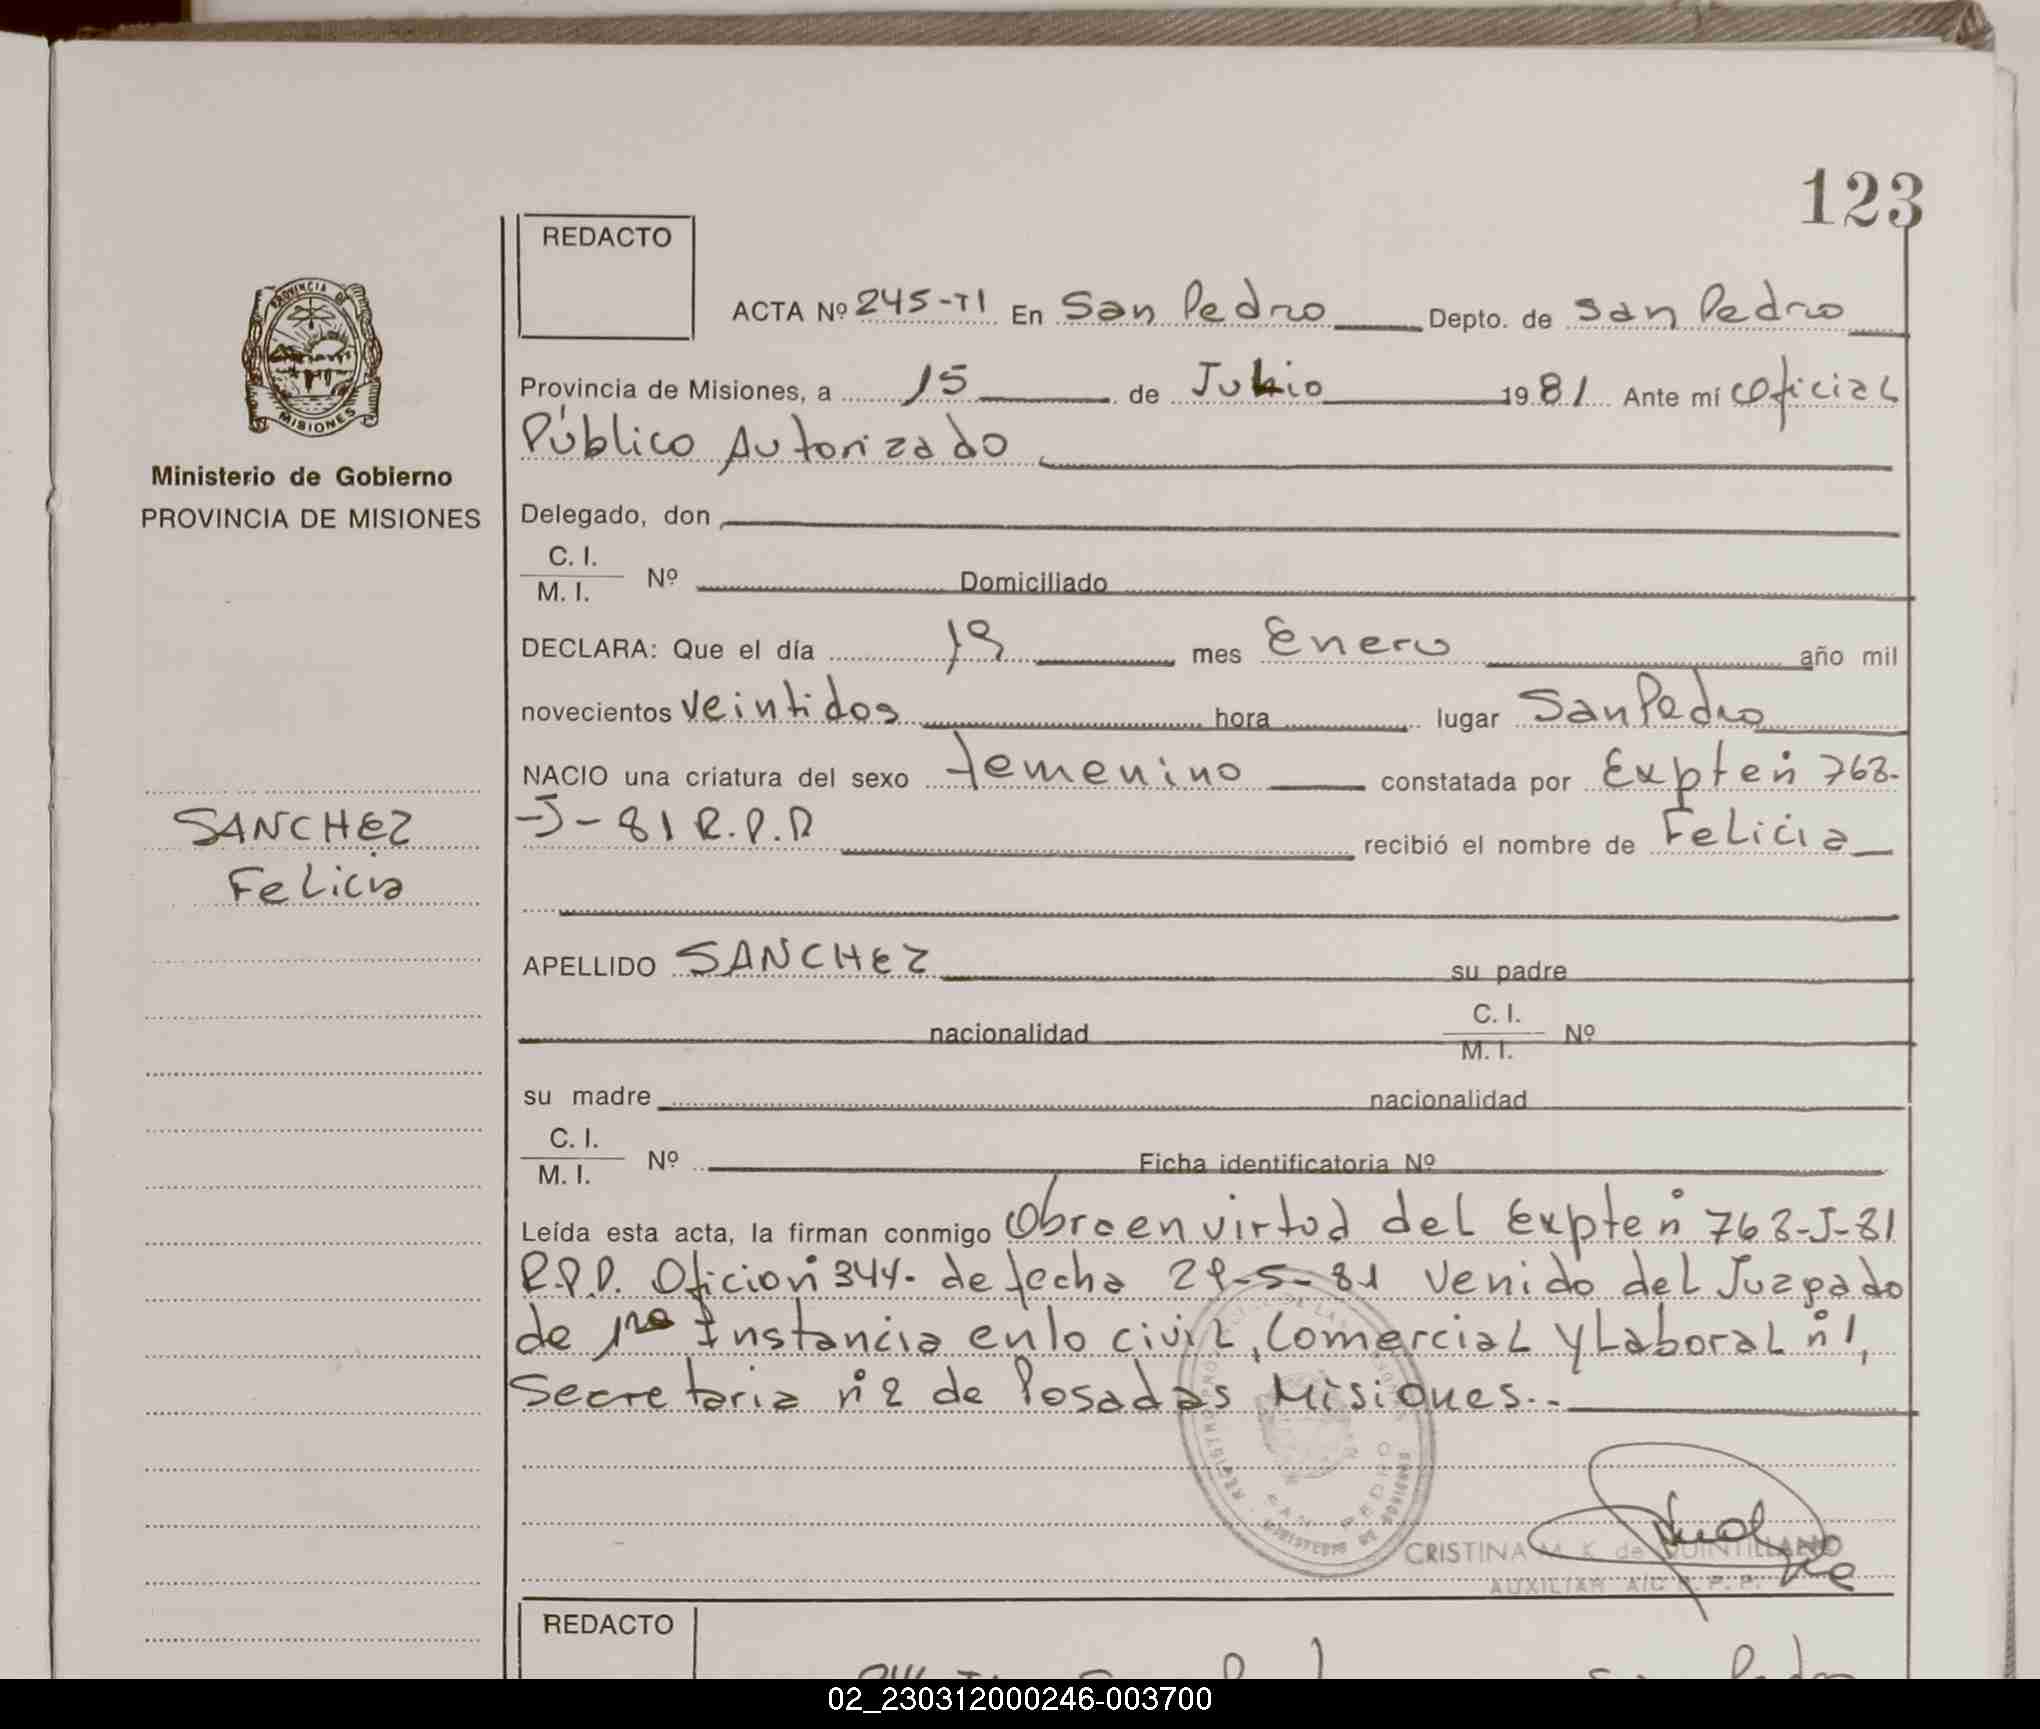 123
REDACTO
ACTA Nº 245-TI En San Pedro Depto. de San Pedro
Provincia de Misiones, a 15 de Julio 1981 Ante mí Oficial
Público Autorizado
Ministerio de Gobierno
PROVINCIA DE MISIONES
Delegado, don
C. I.
M. I. Nº Domiciliado
DECLARA: Que el día 19 mes Enero año mil
novecientos veintidos hora lugar San Pedro
NACIO una criatura del sexo femenino constatada por Expte nº 768-
-J-81 R.P.P. recibió el nombre de Felicia
SANCHEZ
Felicia
APELLIDO SANCHEZ su padre
nacionalidad C. I.
M. I. Nº
su madre nacionalidad
C. I.
M. I. Nº Ficha identificatoria Nº
Leída esta acta, la firman conmigo Obra en virtud del Expte nº 768-J-81
R.P.P. Oficio nº 344. de fecha 29-5-81 venido del Juzgado
de 1ra Instancia en lo civil, Comercial y Laboral nº 1,
Secretaria nº 2 de Posadas Misiones.-
CRISTINA M. K. de QUINTILLANO
AUXILIAR A/C R. P. P.
REDACTO
02_230312000246-003700